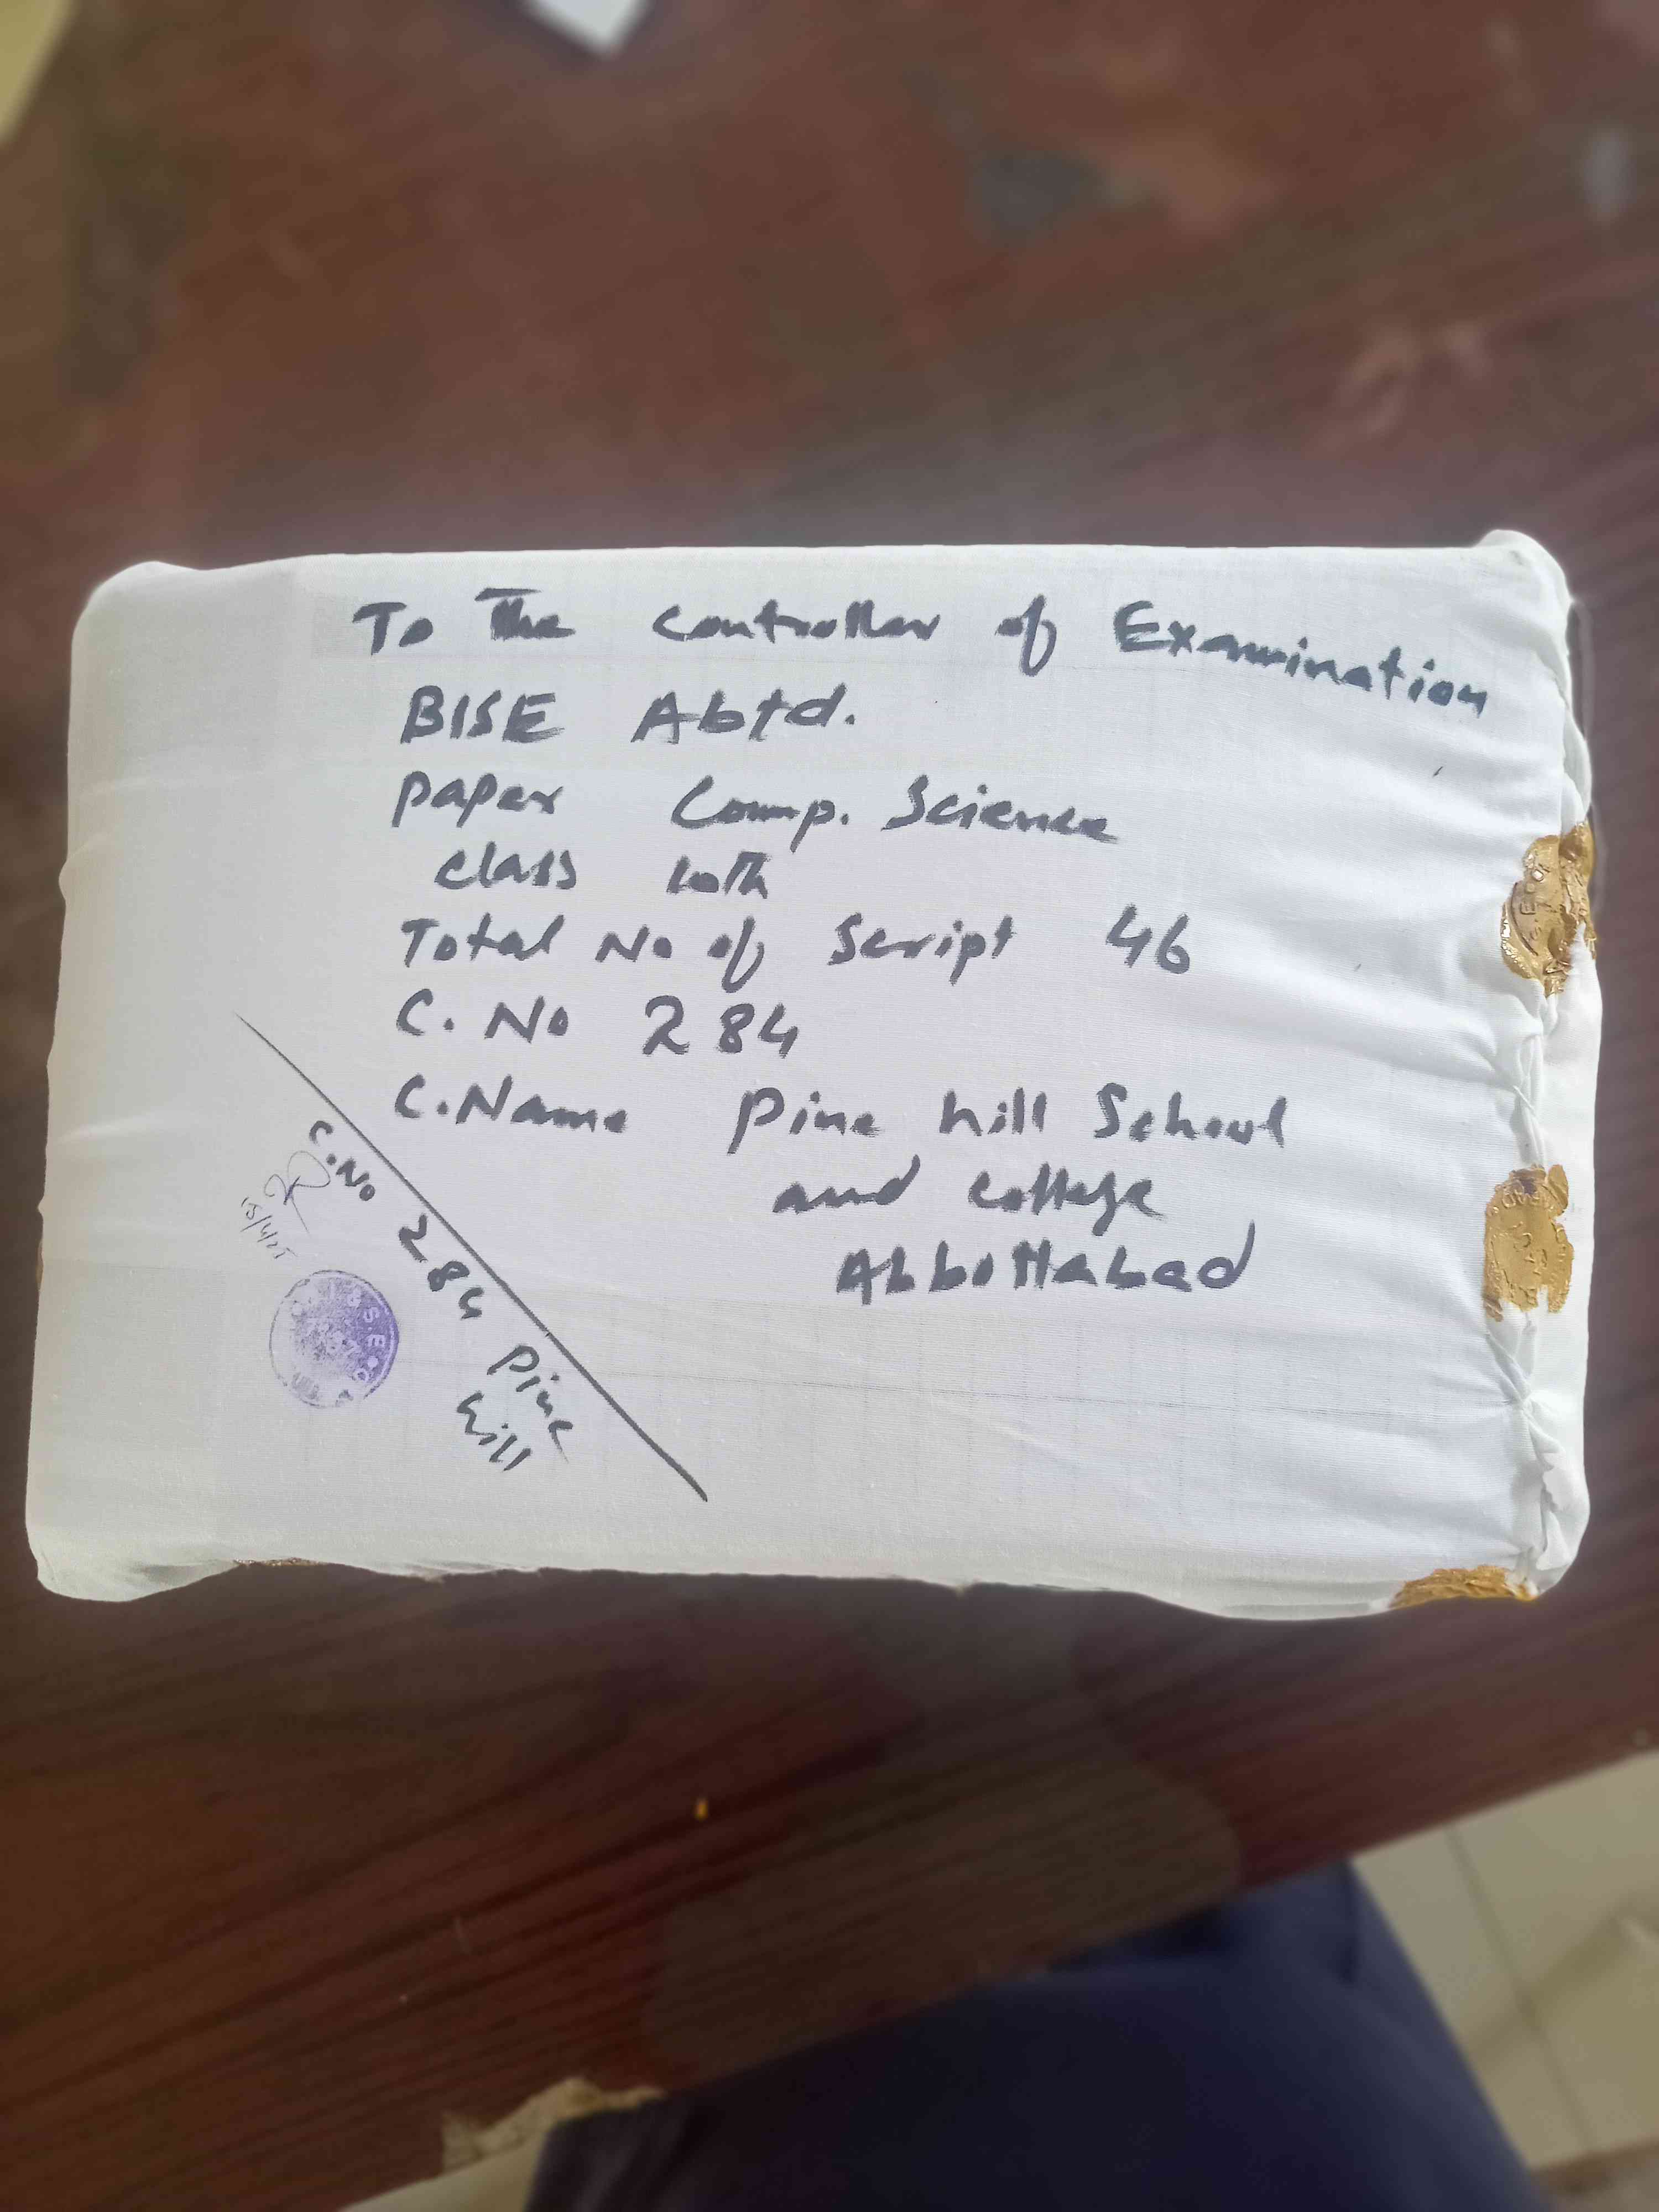 To The Controller of Examination
BISE Abtd.
Paper Comp. Science
Class 10th
Total No of Script 46
C. No 284
C. Name Pine hill School
and College
Abbottabad
C. No 284 Pine
hill
15/4/25